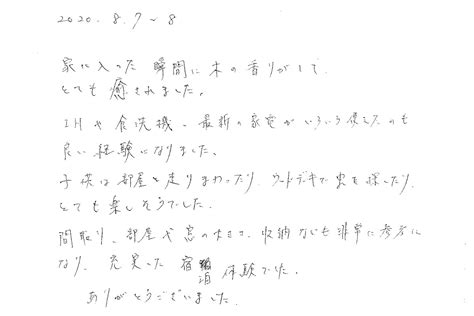 2020.8.7~8
家に入った瞬間に木の香りがして
とても癒されました。
IHや食洗機、最新の家電がいろいろ使えたのも
良い経験になりました。
子供は部屋を走りまわったり、ウッドデキで虫を探したり、
とても楽しそうでした。
間取り、部屋や窓の大きさ、収納なども非常に参考に
なり、充実した宿泊体験でした。
ありがとうございました。